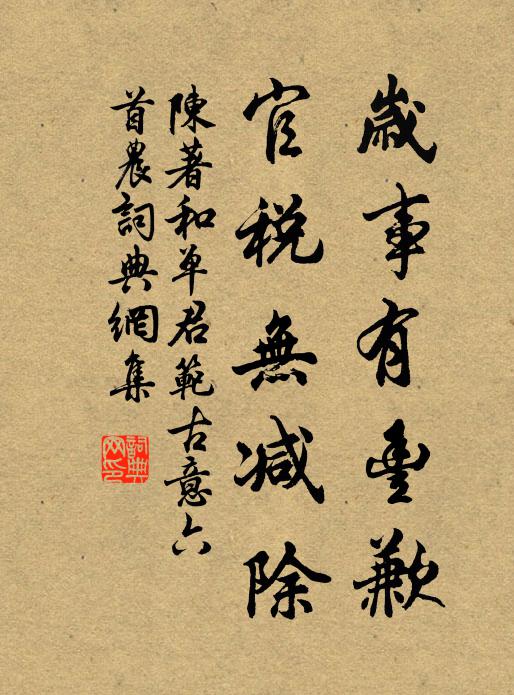 歲事有豐歉
官税無減除
陳著和单君範古意六
首農詞典網集
詞典網印